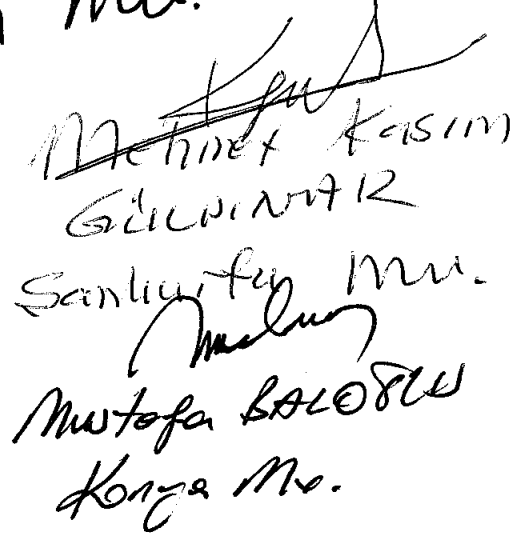 Mv.
Mehmet Kasım
GÜLPINAR
Şanlıurfa Mv.
Mustafa BALOĞLU
Konya Mv.